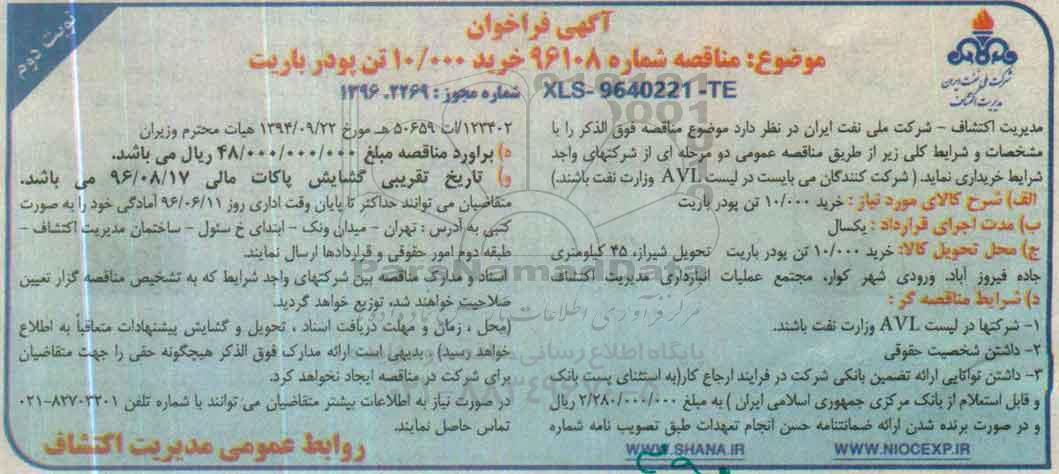 نوبت دوم
آگهی فراخوان
موضوع: مناقصه شماره ۹۶۱۰۸ خرید ۱۰/۰۰۰ تن پودر باریت
XLS- 9640221 -TE شماره مجوز: ۱۳۹۶.۲۲۶۹
شرکت ملی نفت ایران
مدیریت اکتشاف
مدیریت اکتشاف - شرکت ملی نفت ایران در نظر دارد موضوع مناقصه فوق الذکر را با
مشخصات و شرایط کلی زیر از طریق مناقصه عمومی دو مرحله ای از شرکتهای واجد
شرایط خریداری نماید. (شرکت کنندگان می بایست در لیست AVL وزارت نفت باشند.)
الف) شرح کالای مورد نیاز: خرید ۱۰/۰۰۰ تن پودر باریت
ب) مدت اجرای قرارداد: یکسال
ج) محل تحویل کالا: خرید ۱۰/۰۰۰ تن پودر باریت تحویل شیراز، ۴۵ کیلومتری
جاده فیروز آباد، ورودی شهر کوار، مجتمع عملیات انبارداری مدیریت اکتشاف
د) شرایط مناقصه گر:
۱- شرکتها در لیست AVL وزارت نفت باشند.
۲- داشتن شخصیت حقوقی
۳- داشتن توانایی ارائه تضمین بانکی شرکت در فرایند ارجاع کار(به استثنای پست بانک
و قابل استعلام از بانک مرکزی جمهوری اسلامی ایران) به مبلغ ۲/۲۸۰/۰۰۰/۰۰۰ ریال
و در صورت برنده شدن ارائه ضمانتنامه حسن انجام تعهدات طبق تصویب نامه شماره
۱۲۳۴۰۲/ت ۵۰۶۵۹ هـ مورخ ۱۳۹۴/۰۹/۲۲ هیات محترم وزیران
ه) براورد مناقصه مبلغ ۴۸/۰۰۰/۰۰۰/۰۰۰ ریال می باشد.
و) تاریخ تقریبی گشایش پاکات مالی ۹۶/۰۸/۱۷ می باشد.
متقاضیان می توانند حداکثر تا پایان وقت اداری روز ۹۶/۰۶/۱۱ آمادگی خود را به صورت
کتبی به آدرس: تهران - میدان ونک - ابتدای خ سئول - ساختمان مدیریت اکتشاف -
طبقه دوم امور حقوقی و قراردادها ارسال نمایند.
اسناد و مدارک مناقصه بین شرکتهای واجد شرایط که به تشخیص مناقصه گزار تعیین
صلاحیت خواهند شد، توزیع خواهد گردید.
(محل، زمان و مهلت دریافت اسناد، تحویل و گشایش پیشنهادات متعاقباً به اطلاع
خواهد رسید) بدیهی است ارائه مدارک فوق الذکر هیچگونه حقی را جهت متقاضیان
برای شرکت در مناقصه ایجاد نخواهد کرد.
در صورت نیاز به اطلاعات بیشتر متقاضیان می توانند با شماره تلفن ۸۲۷۰۳۲۰۱-۰۲۱
تماس حاصل نمایند.
WWW.NIOCEXP.IR WWW.SHANA.IR
روابط عمومی مدیریت اکتشاف
ParsNamadData
پایگاه اطلاع رسانی